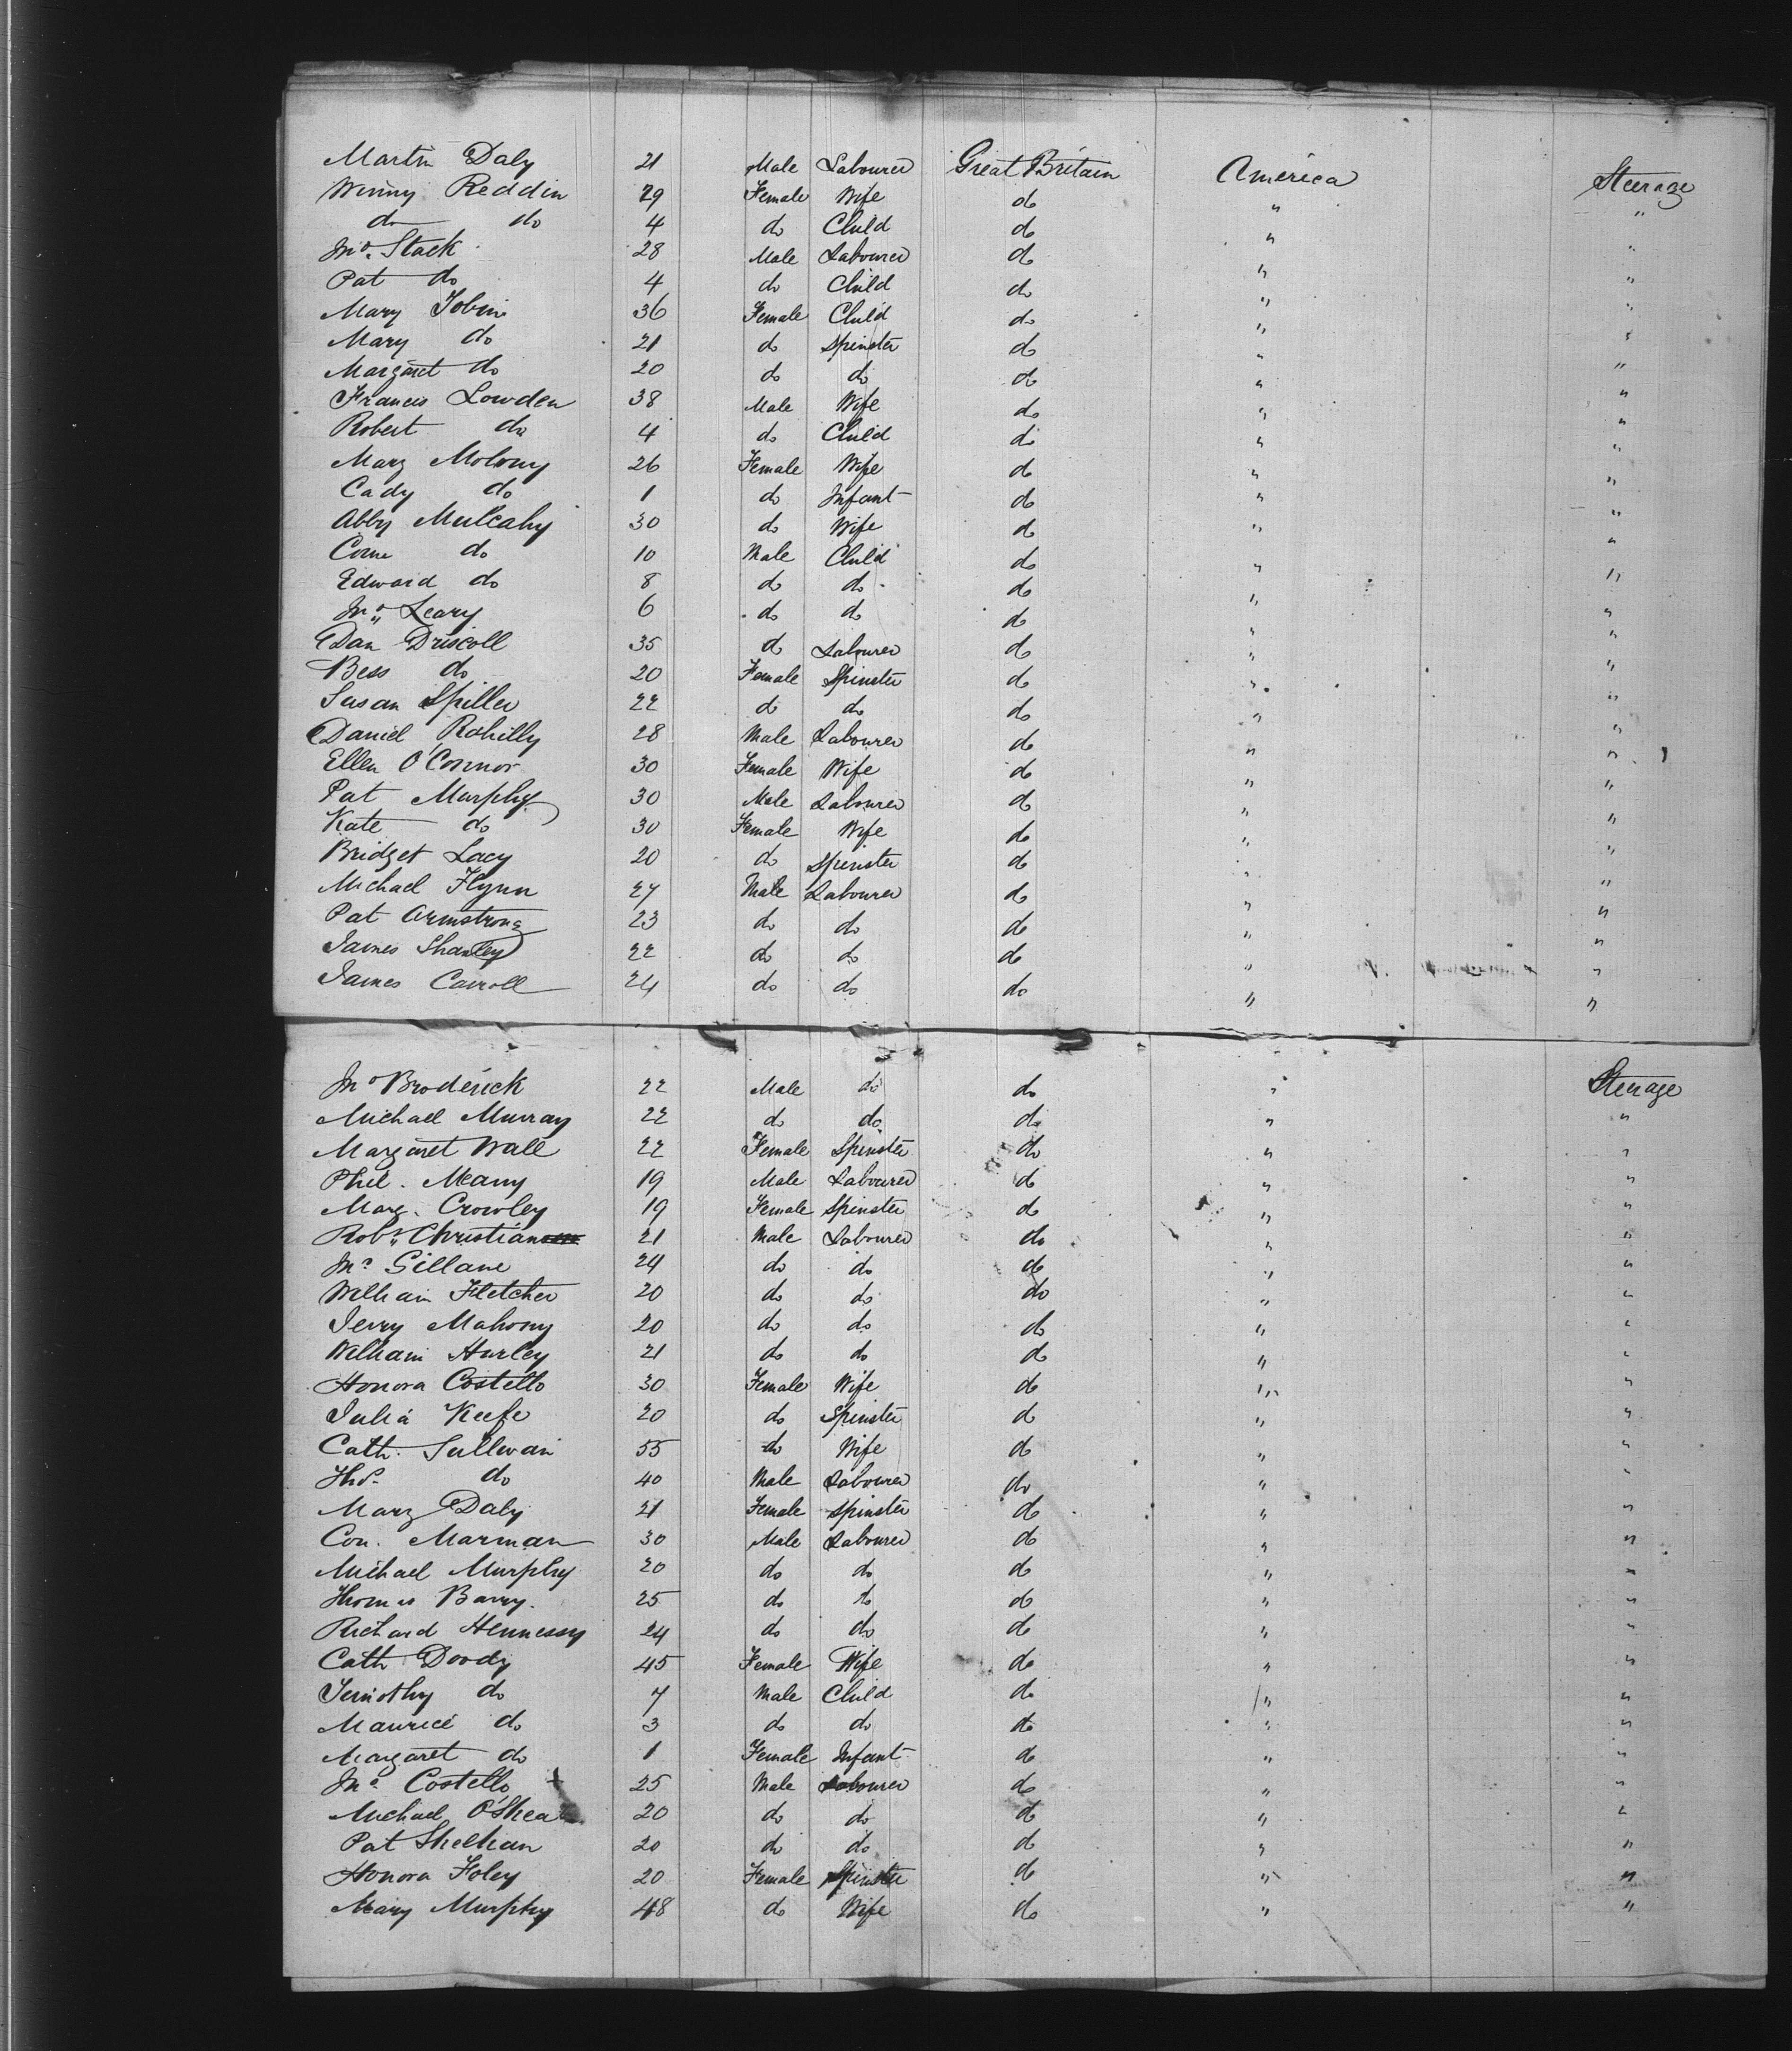 Martin Daly 21 Male Labourer Great Britain America Steerage
Winny Reddin 29 Female Wife do " "
do do 4 do Child do " "
Jno. Stack 28 Male Labourer do " "
Pat do 4 do Child do " "
Mary Tobin 36 Female Child do " "
Mary do 21 do Spinster do " "
Margaret do 20 do do do " "
Francis Lowden 38 Male Wife do " "
Robert do 4 do Child do " "
Mary Molony 26 Female Wife do " "
Cady do 1 do Infant do " "
Abby Mulcahy 30 do Wife do " "
Corne do 10 Male Child do " "
Edward do 8 do do do " "
Jno. Leary 6 do do do " "
Dan Driscoll 35 do Labourer do " "
Bess do 20 Female Spinster do " "
Susan Spiller 22 do do do " "
Daniel Rohilly 28 Male Labourer do " "
Ellen O'Connor 30 Female Wife do " "
Pat Murphy 30 Male Labourer do " "
Kate do 30 Female Wife do " "
Bridget Lacy 20 do Spinster do " "
Michael Flynn 27 Male Labourer do " "
Pat Armstrong 23 do do do " "
James Shanley 22 do do do " "
James Carroll 24 do do do " "
Jno Broderick 22 Male do do " Steerage
Michael Murray 22 do do do " "
Margaret Wall 22 Female Spinster do " "
Phil. Meany 19 Male Labourer do " "
Marg. Crowley 19 Female Spinster do " "
Robt. Christian 21 Male Labourer do " "
Jno Gillane 24 do do do " "
William Fletcher 20 do do do " "
Jerry Mahony 20 do do do " "
William Hurley 21 do do do " "
Honora Costello 30 Female Wife do " "
Julia Keefe 20 do Spinster do " "
Cath. Sullivan 55 do Wife do " "
Thos. do 40 Male Labourer do " "
Mary Daly 21 Female Spinster do " "
Con. Marman 30 Male Labourer do " "
Michael Murphy 20 do do do " "
Thomas Barry. 25 do do do " "
Richard Hennessy 24 do do do " "
Cath Doody 45 Female Wife do " "
Timothy do 7 Male Child do " "
Maurice do 3 do do do " "
Margaret do 1 Female Infant do " "
Jno Costello 25 Male Labourer do " "
Michael O'Shea 20 do do do " "
Pat Sheehan 20 do do do " "
Honora Foley 20 Female Spinster do " "
Mary Murphy 48 do Wife do " "